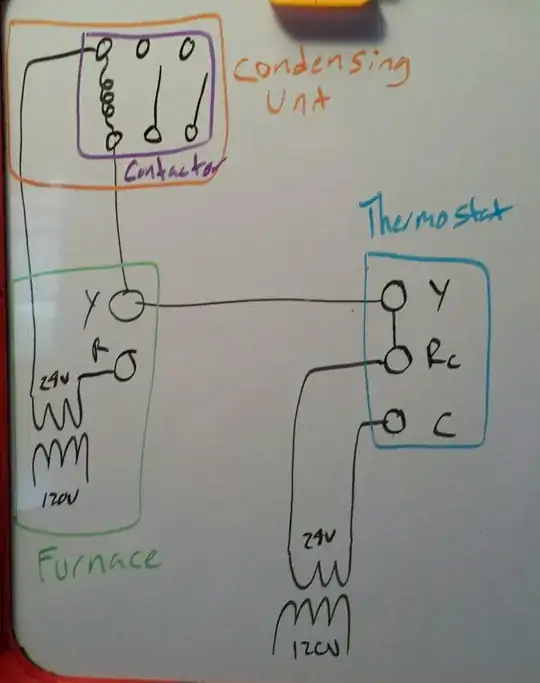 Condensing
Unit
Contactor
Thermostat
Y
Y
R
Rc
24V
C
120V
24V
Furnace
120V